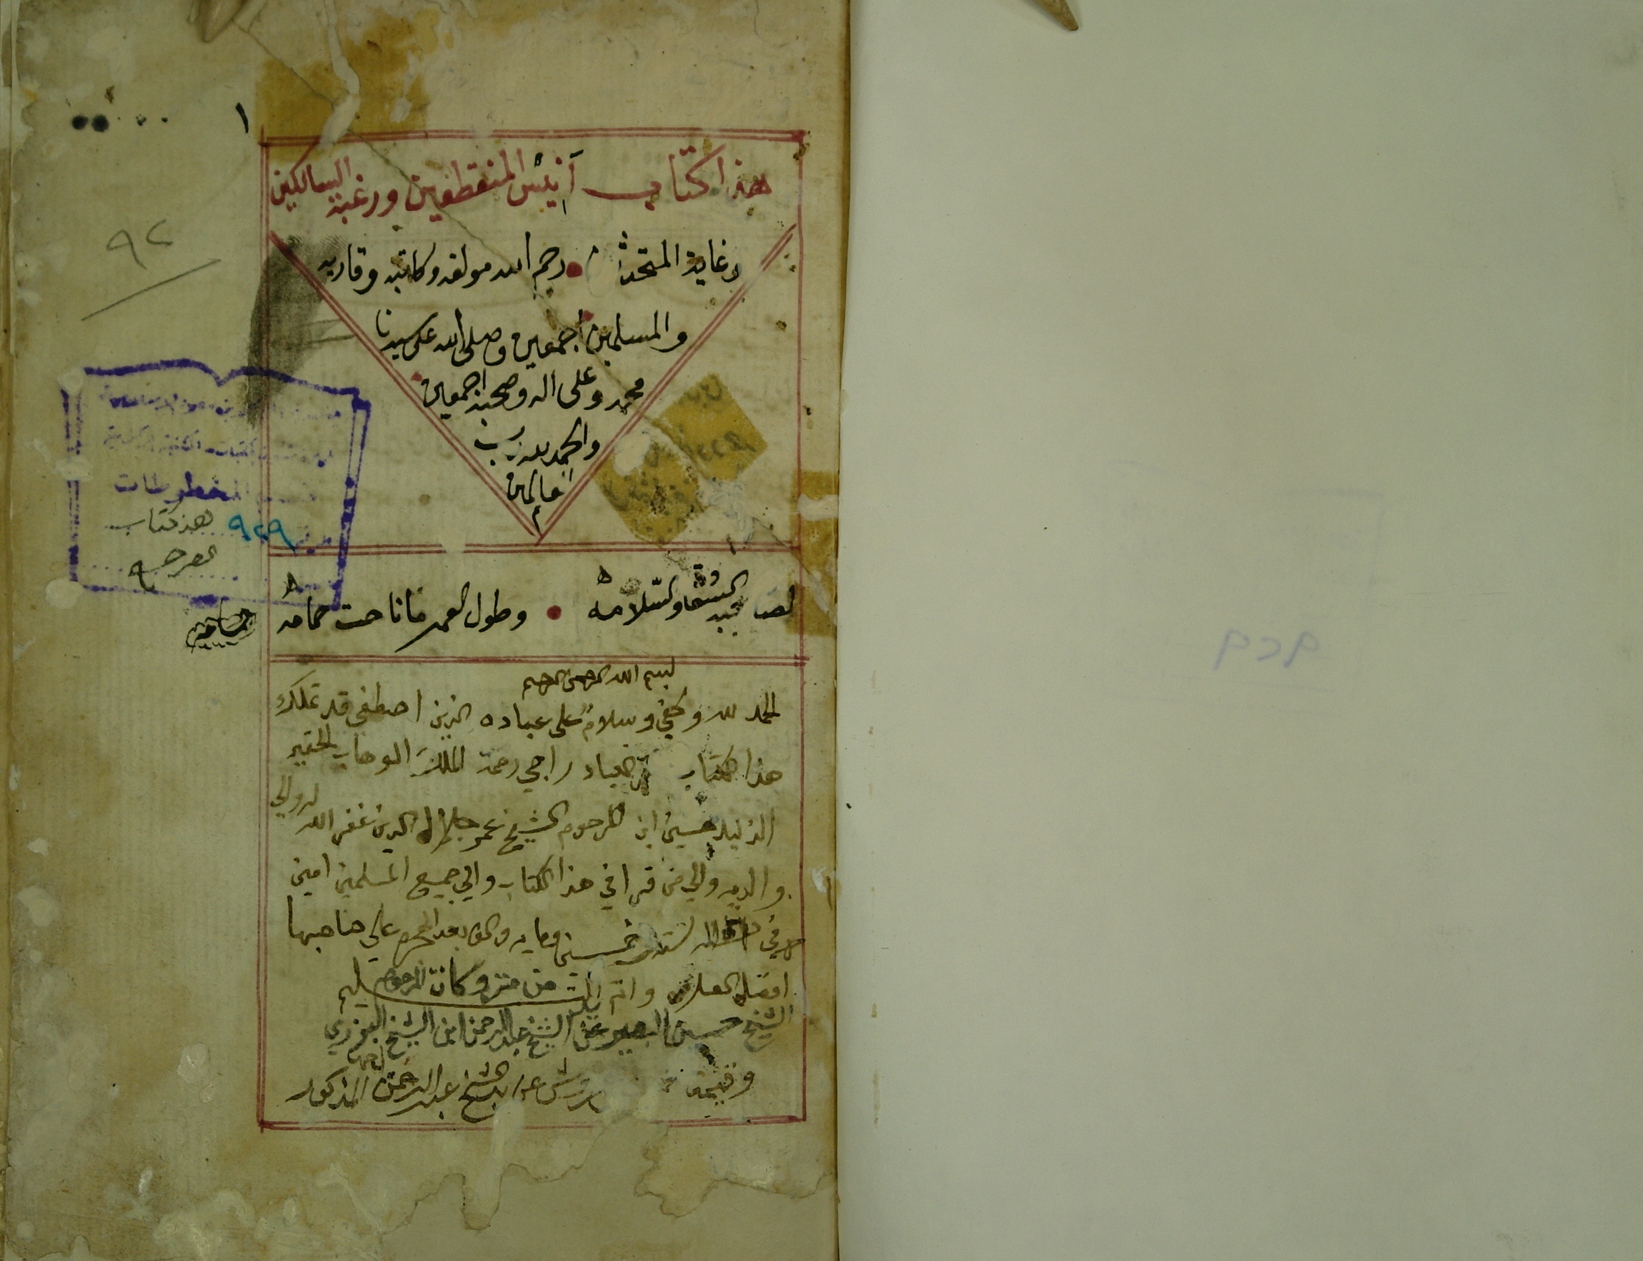 ١
هذا كتاب أنيس المنقطعين ورغبة السالكين
وغاية المتحد رحم الله مولفه وكاتبه وقاريه
والمسلمين اجمعين وصلى الله على سيدنا
محمد وعلى اله وصحبه اجمعين
والحمد لله رب
العالمين
م
٩٢
المخطوطات
٩٢٩
هذ كتاب
لصاحبه السعادة والسلامه وطول العمر ما ناحت حمامه
حمامه
بسم الله الرحمن الرحيم
الحمد لله وكفى وسلام على عباده الذين اصطفى قد تملك
هذا الكتاب العباد راجي رحمة الملك الوهاب الحقير
الذليل حسين ابن المرحوم الشيخ عمر جلال الدين غفر الله له ولي
والديه والي من قرا في هذا الكتاب والي جميع المسلمين امين
في سنة خمسين ومايه والف بعد الهجره على صاحبها
افضل الصلاه واتم التسليم
من متروكات المرحوم
الشيخ حسين البصير عن الشيخ عبد الرحمن ابن الشيخ
وقيمة قرش عن يد الشيخ عبد الرحمن المذكور